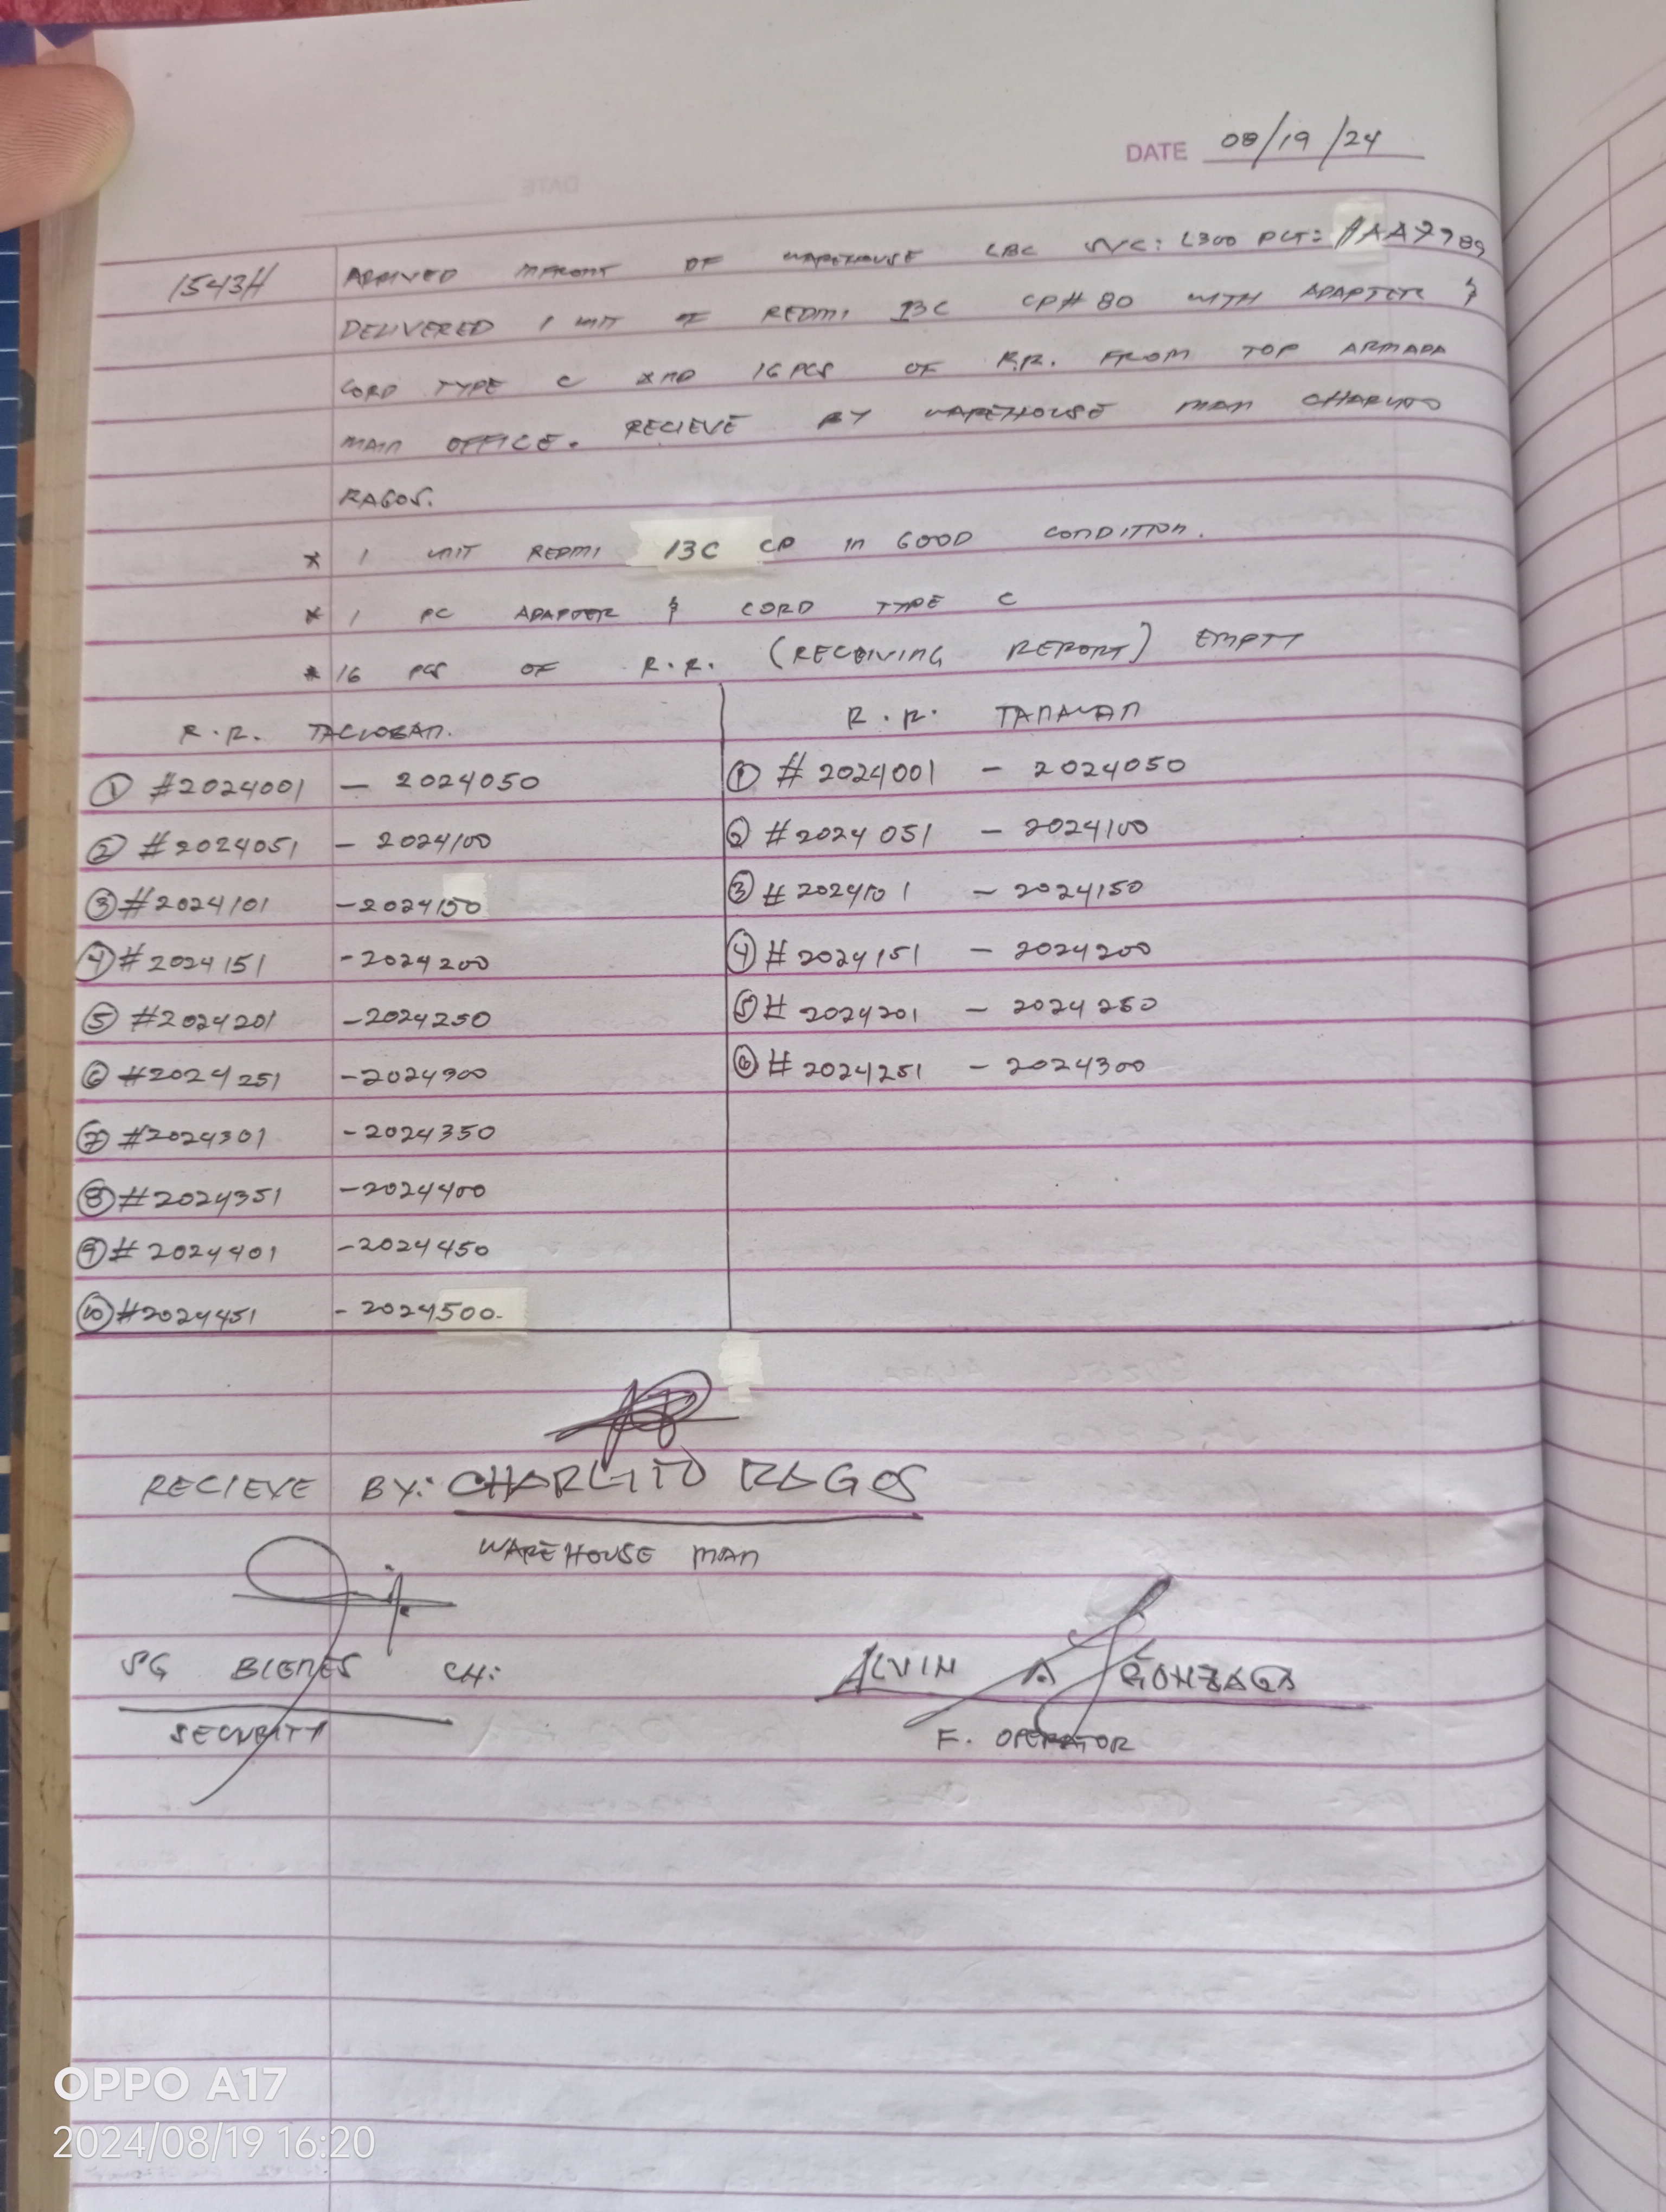 DATE 08/19/24
1543H ARRIVED INFRONT OF WAREHOUSE LBC SVC: L300 PLT: AAA7789
DELIVERED 1 UNIT OF REDMI 13C CP# 80 WITH ADAPTER &
CORD TYPE C AND 16 PCS OF R.R. FROM TOP ARMADA
MAIN OFFICE. RECIEVE BY WAREHOUSE MAN CHARLITO
RAGOS.
* 1 UNIT REDMI 13C CP IN GOOD CONDITION.
* 1 PC ADAPTER & CORD TYPE C
* 16 PCS OF R.R. (RECEIVING REPORT) EMPTY
R.R. TACLOBAN. R.R. TANAUAN
① #2024001 - 2024050 ① #2024001 - 2024050
② #2024051 - 2024100 ② #2024051 - 2024100
③ #2024101 - 2024150 ③ #2024101 - 2024150
④ #2024151 - 2024200 ④ #2024151 - 2024200
⑤ #2024201 - 2024250 ⑤ #2024201 - 2024250
⑥ #2024251 - 2024300 ⑥ #2024251 - 2024300
⑦ #2024301 - 2024350
⑧ #2024351 - 2024400
⑨ #2024401 - 2024450
⑩ #2024451 - 2024500.
RECIEVE BY: CHARLITO RAGOS
WAREHOUSE MAN
SG CH: ALVIN A GONZAGA
SECURITY F. OPERATOR
OPPO A17
2024/08/19 16:20